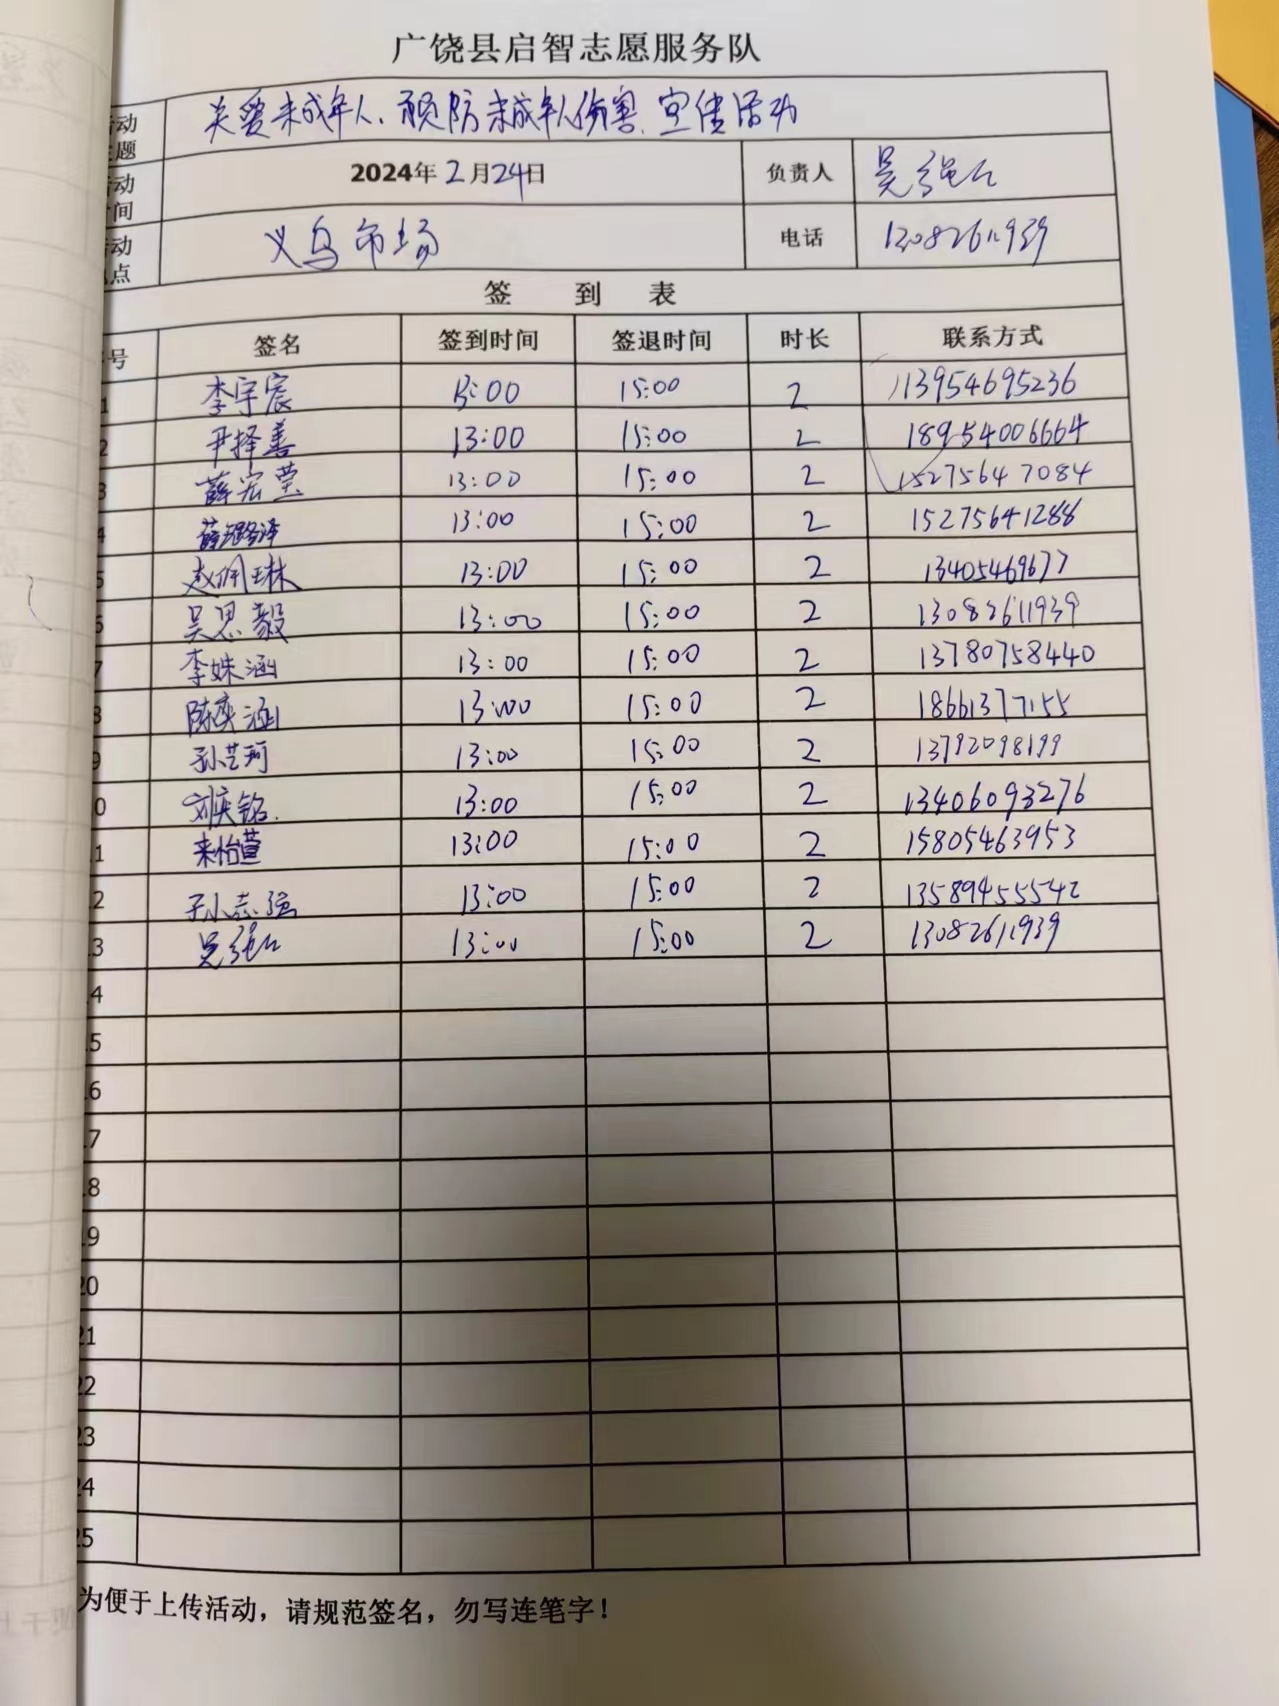 广饶县启智志愿服务队
活动主题 关爱未成年人、预防未成年人伤害、宣传活动
活动时间 2024年2月24日 负责人 吴强仁
活动地点 义乌市场 电话 13082611939
签 到 表
序号 签名 签到时间 签退时间 时长 联系方式
1 李宇宸 13:00 15:00 2 13954695236
2 尹择善 13:00 15:00 2 18954006664
3 薛宏莹 13:00 15:00 2 15275647084
4 薛璐泽 13:00 15:00 2 15275641288
5 赵佩琳 13:00 15:00 2 13405469677
6 吴思毅 13:00 15:00 2 13082611939
7 李姝涵 13:00 15:00 2 13780758440
8 陈奕涵 13:00 15:00 2 18661377155
9 孙艺珂 13:00 15:00 2 13792098199
10 刘奕铭 13:00 15:00 2 13406093276
11 来怡萱 13:00 15:00 2 15805463953
12 孙志强 13:00 15:00 2 13589455542
13 吴强仁 13:00 15:00 2 13082611939
14
15
16
17
18
19
20
21
22
23
24
25
为便于上传活动，请规范签名，勿写连笔字！